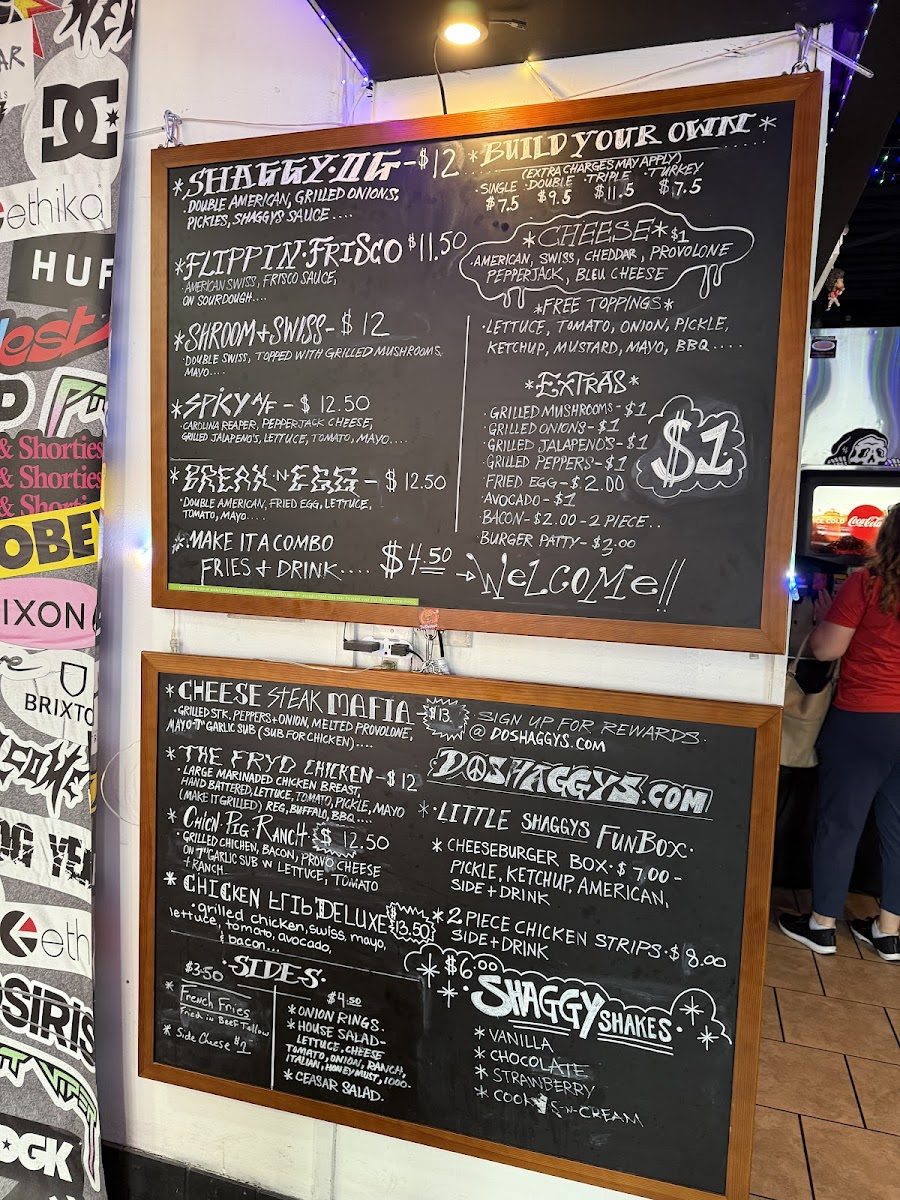 *SHAGGY·OG-$12
·DOUBLE AMERICAN, GRILLED ONIONS,
PICKLES, SHAGGYS SAUCE....
*FLIPPIN·FRISCO $11.50
·AMERICAN SWISS, FRISCO SAUCE,
ON SOURDOUGH....
*SHROOM+SWISS-$12
·DOUBLE SWISS, TOPPED WITH GRILLED MUSHROOMS,
MAYO....
*SPICY A/F-$12.50
·CAROLINA REAPER, PEPPERJACK CHEESE,
GRILLED JALAPENO'S, LETTUCE, TOMATO, MAYO....
*BREAK·N·EGG-$12.50
·DOUBLE AMERICAN, FRIED EGG, LETTUCE,
TOMATO, MAYO....
*MAKE IT A COMBO
FRIES + DRINK.... $4.50
→WELCOME!!
*BUILD YOUR OWN*
(EXTRA CHARGES MAY APPLY)
·SINGLE ·DOUBLE ·TRIPLE ·TURKEY
$7.5 $9.5 $11.5 $7.5
*CHEESE*$1
·AMERICAN, SWISS, CHEDDAR, PROVOLONE
PEPPERJACK, BLEU CHEESE
*FREE TOPPINGS*
·LETTUCE, TOMATO, ONION, PICKLE,
KETCHUP, MUSTARD, MAYO, BBQ....
*EXTRAS*
·GRILLED MUSHROOMS-$1
·GRILLED ONIONS-$1
·GRILLED JALAPENO'S-$1
·GRILLED PEPPERS-$1
·FRIED EGG-$2.00
·AVOCADO-$1
·BACON-$2.00-2 PIECE..
BURGER PATTY-$3.00
$1
*CHEESE STEAK MAFIA-$13.
·GRILLED STK, PEPPERS+ONION, MELTED PROVOLONE,
MAYO-7" GARLIC SUB (SUB FOR CHICKEN)....
*THE FRYD CHICKEN-$12
·LARGE MARINADED CHICKEN BREAST,
HAND BATTERED, LETTUCE, TOMATO, PICKLE, MAYO
(MAKE IT GRILLED) REG, BUFFALO, BBQ....
*CHICN·PIG·RANCH·$12.50
·GRILLED CHICHEN, BACON, PROVO CHEESE
ON 7" GARLIC SUB W LETTUCE, TOMATO
+RANCH..
*CHICKEN DELUXE $13.50
·grilled chicken, swiss, mayo,
lettuce, tomato, avocado,
& bacon...
·SIDES·
$3.50
*French Fries
Fried in Beef Tallow
*Side Cheese $1
$4.50
*ONION RINGS.
*HOUSE SALAD-
LETTUCE, CHEESE
TOMATO, ONION, RANCH,
ITALIAN, HONEY MUST, 1000-
*CEASAR SALAD.
SIGN UP FOR REWARDS.
@ DOSHAGGYS.COM
·DOSHAGGYS.COM
*·LITTLE SHAGGYS FUNBOX·
*CHEESEBURGER BOX·$7.00-
PICKLE, KETCHUP, AMERICAN,
SIDE+DRINK.
*2 PIECE CHICKEN STRIPS·$8.00
SIDE+DRINK
$6.00
·SHAGGY SHAKES·
*VANILLA
*CHOCOLATE
*STRAWBERRY
*S-N-CREAM
DC
ethika
HUF
& Shorties
& Shorties
& Shorties
OBEY
IXON
BRIXTO
eth
OSIRIS
ICE COLD Coca-Cola